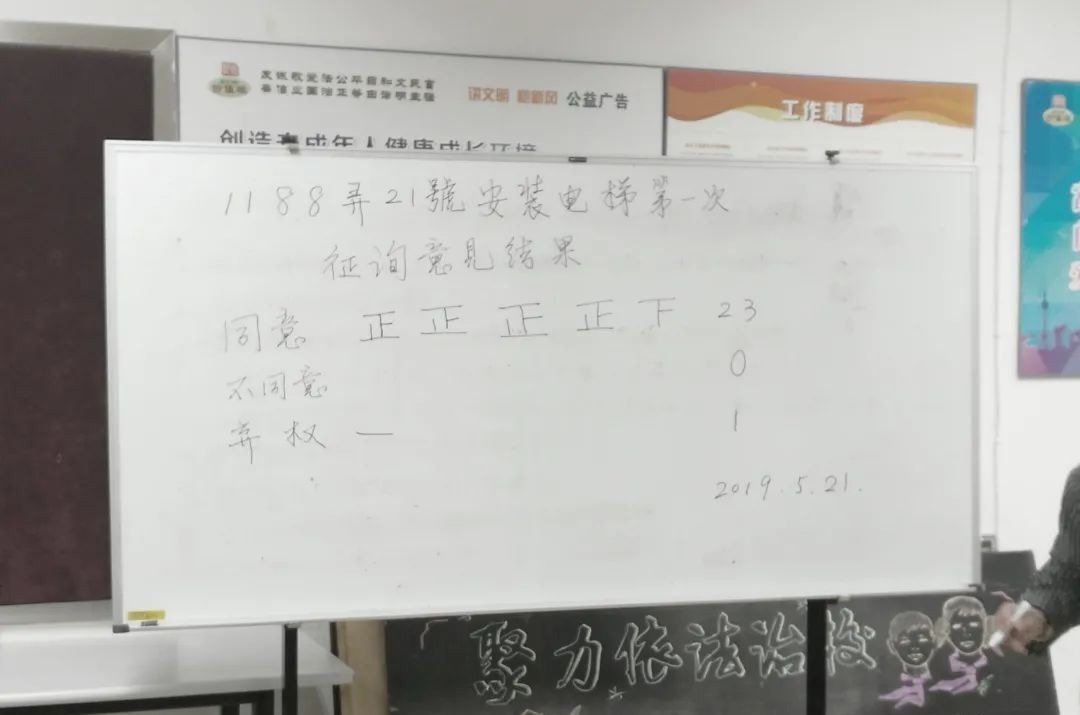 友诚敬爱法公平自和文民富
善信业国治正等由谐明主强
讲文明 树新风 公益广告
工作制度
创造未成年人健康成长环境
1188弄21號安装电梯第一次
征询意见结果
同意 正正正正下 23
不同意 0
弃权 一 1
2019.5.21.
聚力依法治校